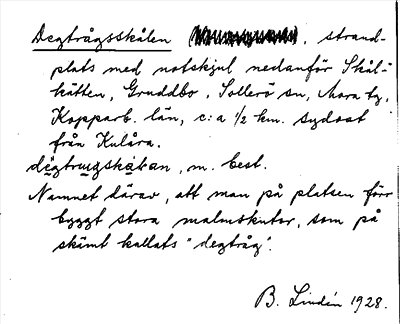 Degtrågsskålen, strand-
plats med notskjul nedanför Skål-
hätten, Gruddbo, Sollerö sn, Mora tg,
Kopparb. län, c:a ½ km. sydost
från Kulåra.
m. best.
Namnet därav, att man på platsen förr
byggt stora malmskutor, som på
skämt kallats "degtråg".
B. Lindén 1928.